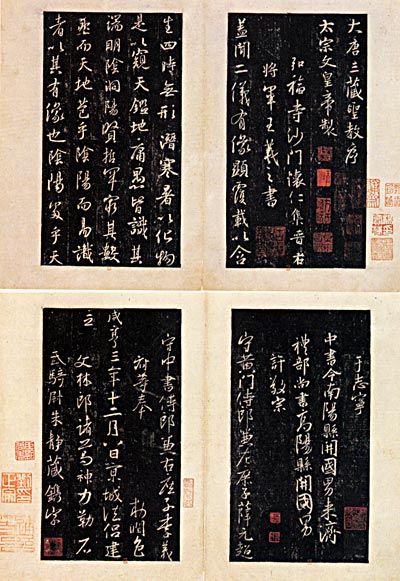 大唐三藏聖教序
太宗文皇帝製
弘福寺沙門懷仁集晉右
將軍王羲之書
蓋聞二儀有像顯覆載以含
生四時無形潛寒暑以化物
是以窺天鑑地庸愚皆識其
端明陰洞陽賢哲罕窮其數
然而天地苞乎陰陽而易識
者以其有像也陰陽處乎天
于志寧
中書令南陽縣開國男來濟
禮部尚書高陽縣開國男
許敬宗
守黃門侍郎兼左庶子薛元超
守中書侍郎兼右庶子李義
府等奉 勑潤色
咸亨三年十二月八日京城法侶建
立
文林郎諸葛神力勒石
武騎尉朱靜藏鐫字